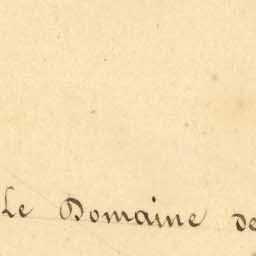 Le Domaine de